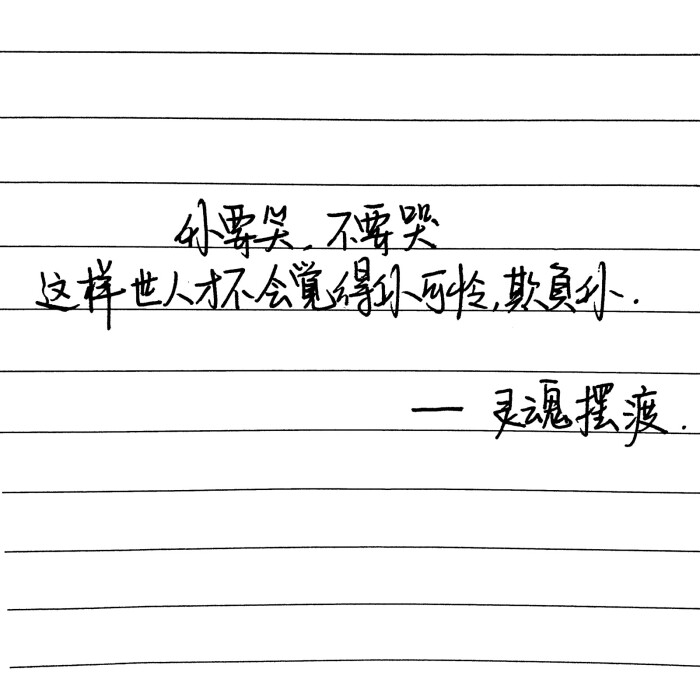 你要笑，不要哭
这样世人才不会覺得你可怜，欺負你．
— 灵魂摆渡．